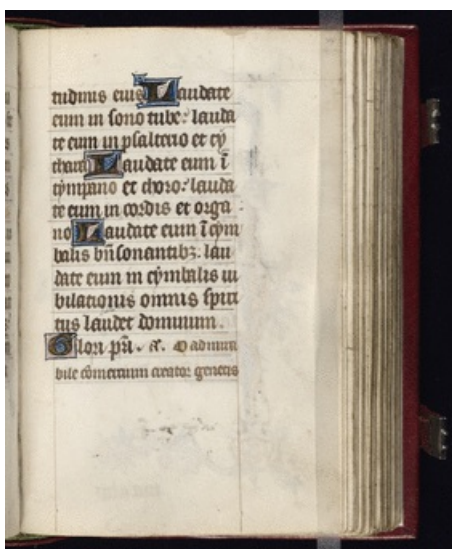 tudinis eius Laudate
eum in sono tube: lauda
te eum in psalterio et cy
thara Laudate eum ī
tympano et choro: lauda
te eum in cordis et orga
no Laudate eum ī cym
balis bn̄ sonantibꝫ: lau
date eum in cymbalis iu
bilationis omnis spiri
tus laudet dominum.
Glori pr̄i. a. O admira
bile cōmercium creator generis